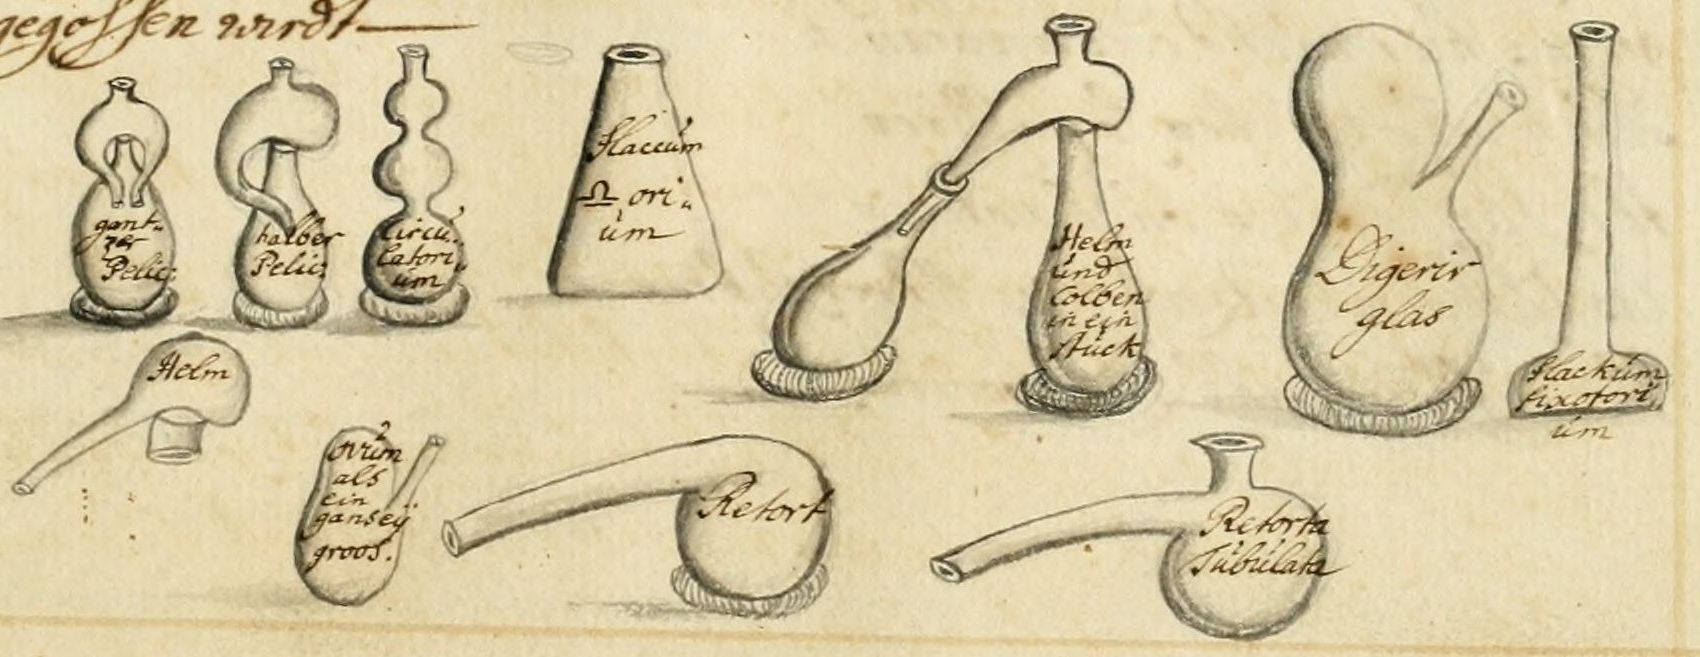 gegossen wirdt
gant-
zer
Pelic:
halber
Pelic:
Circu-
latori-
um
Flaccum
♎ ori-
um
Helm
und
Colben
in ein
stück
Digerir
glas
Flackum
fixatori-
um
Helm
ovum
als
ein
gansey
groos.
Retort
Retorta
Tubulata